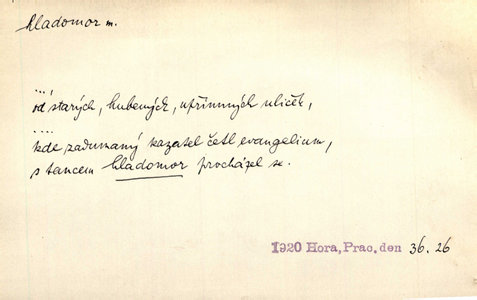 hladomor m.
...,
od starých, hubených, upřímných uliček,
....
kde zadumaný kazatel četl evangelium,
s tancem hladomor procházel se.
1920 Hora, Prac. den 36. 26